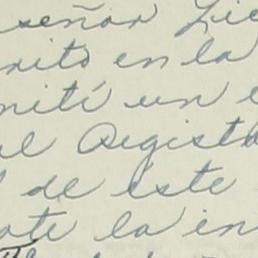 señor Lic
rito en la
mití un e
al Regist
de este
ote la in